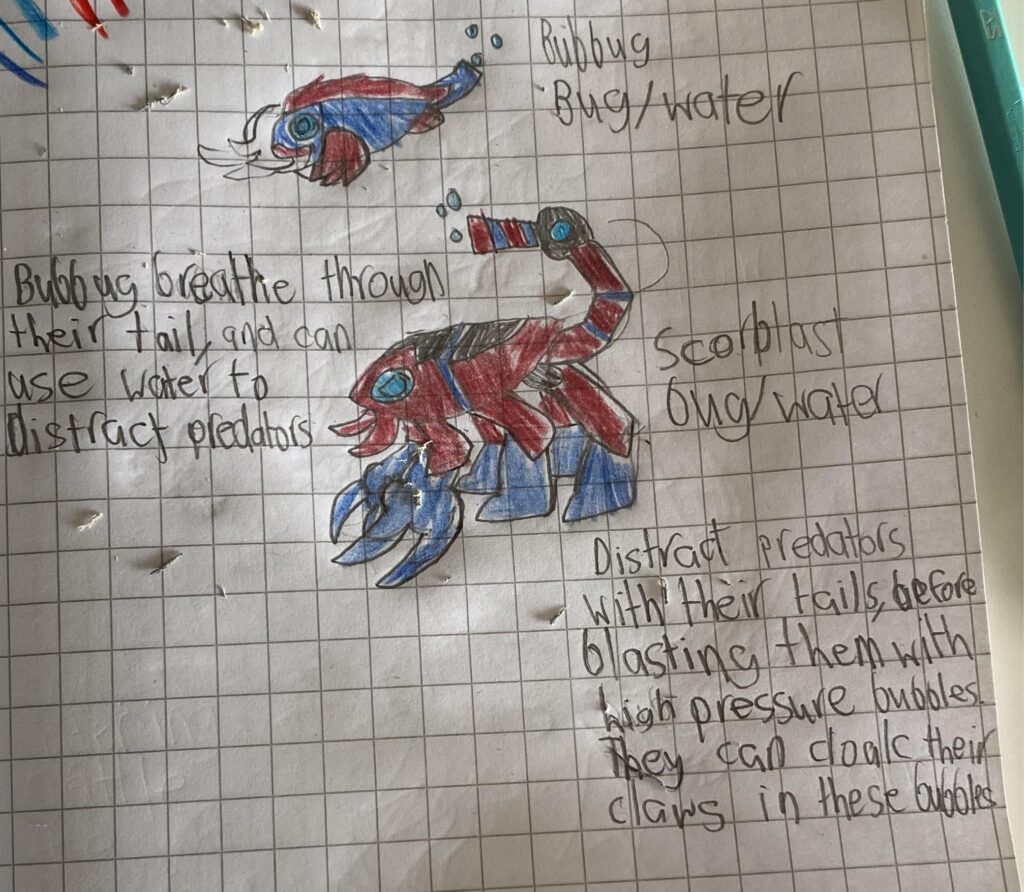 Bubbug
Bug/water
Bubbug breathe through
their tail, and can
use water to
Distract predators
Scorblast
bug/water
Distract predators
with their tails, before
blasting them with
high pressure bubbles.
They can cloak their
claws in these bubbles